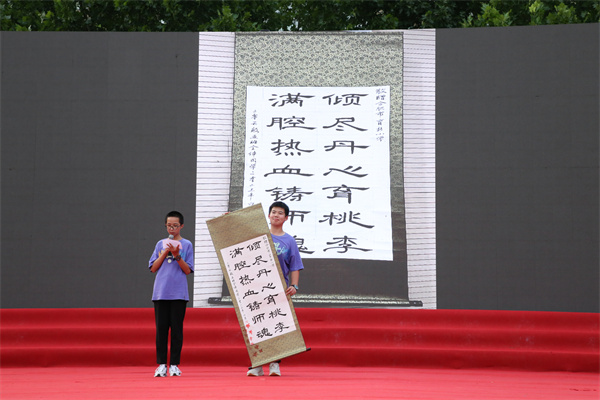 敬赠合肥市育红小学
倾尽丹心育桃李
满腔热血铸师魂
倾尽丹心育桃李
满腔热血铸师魂